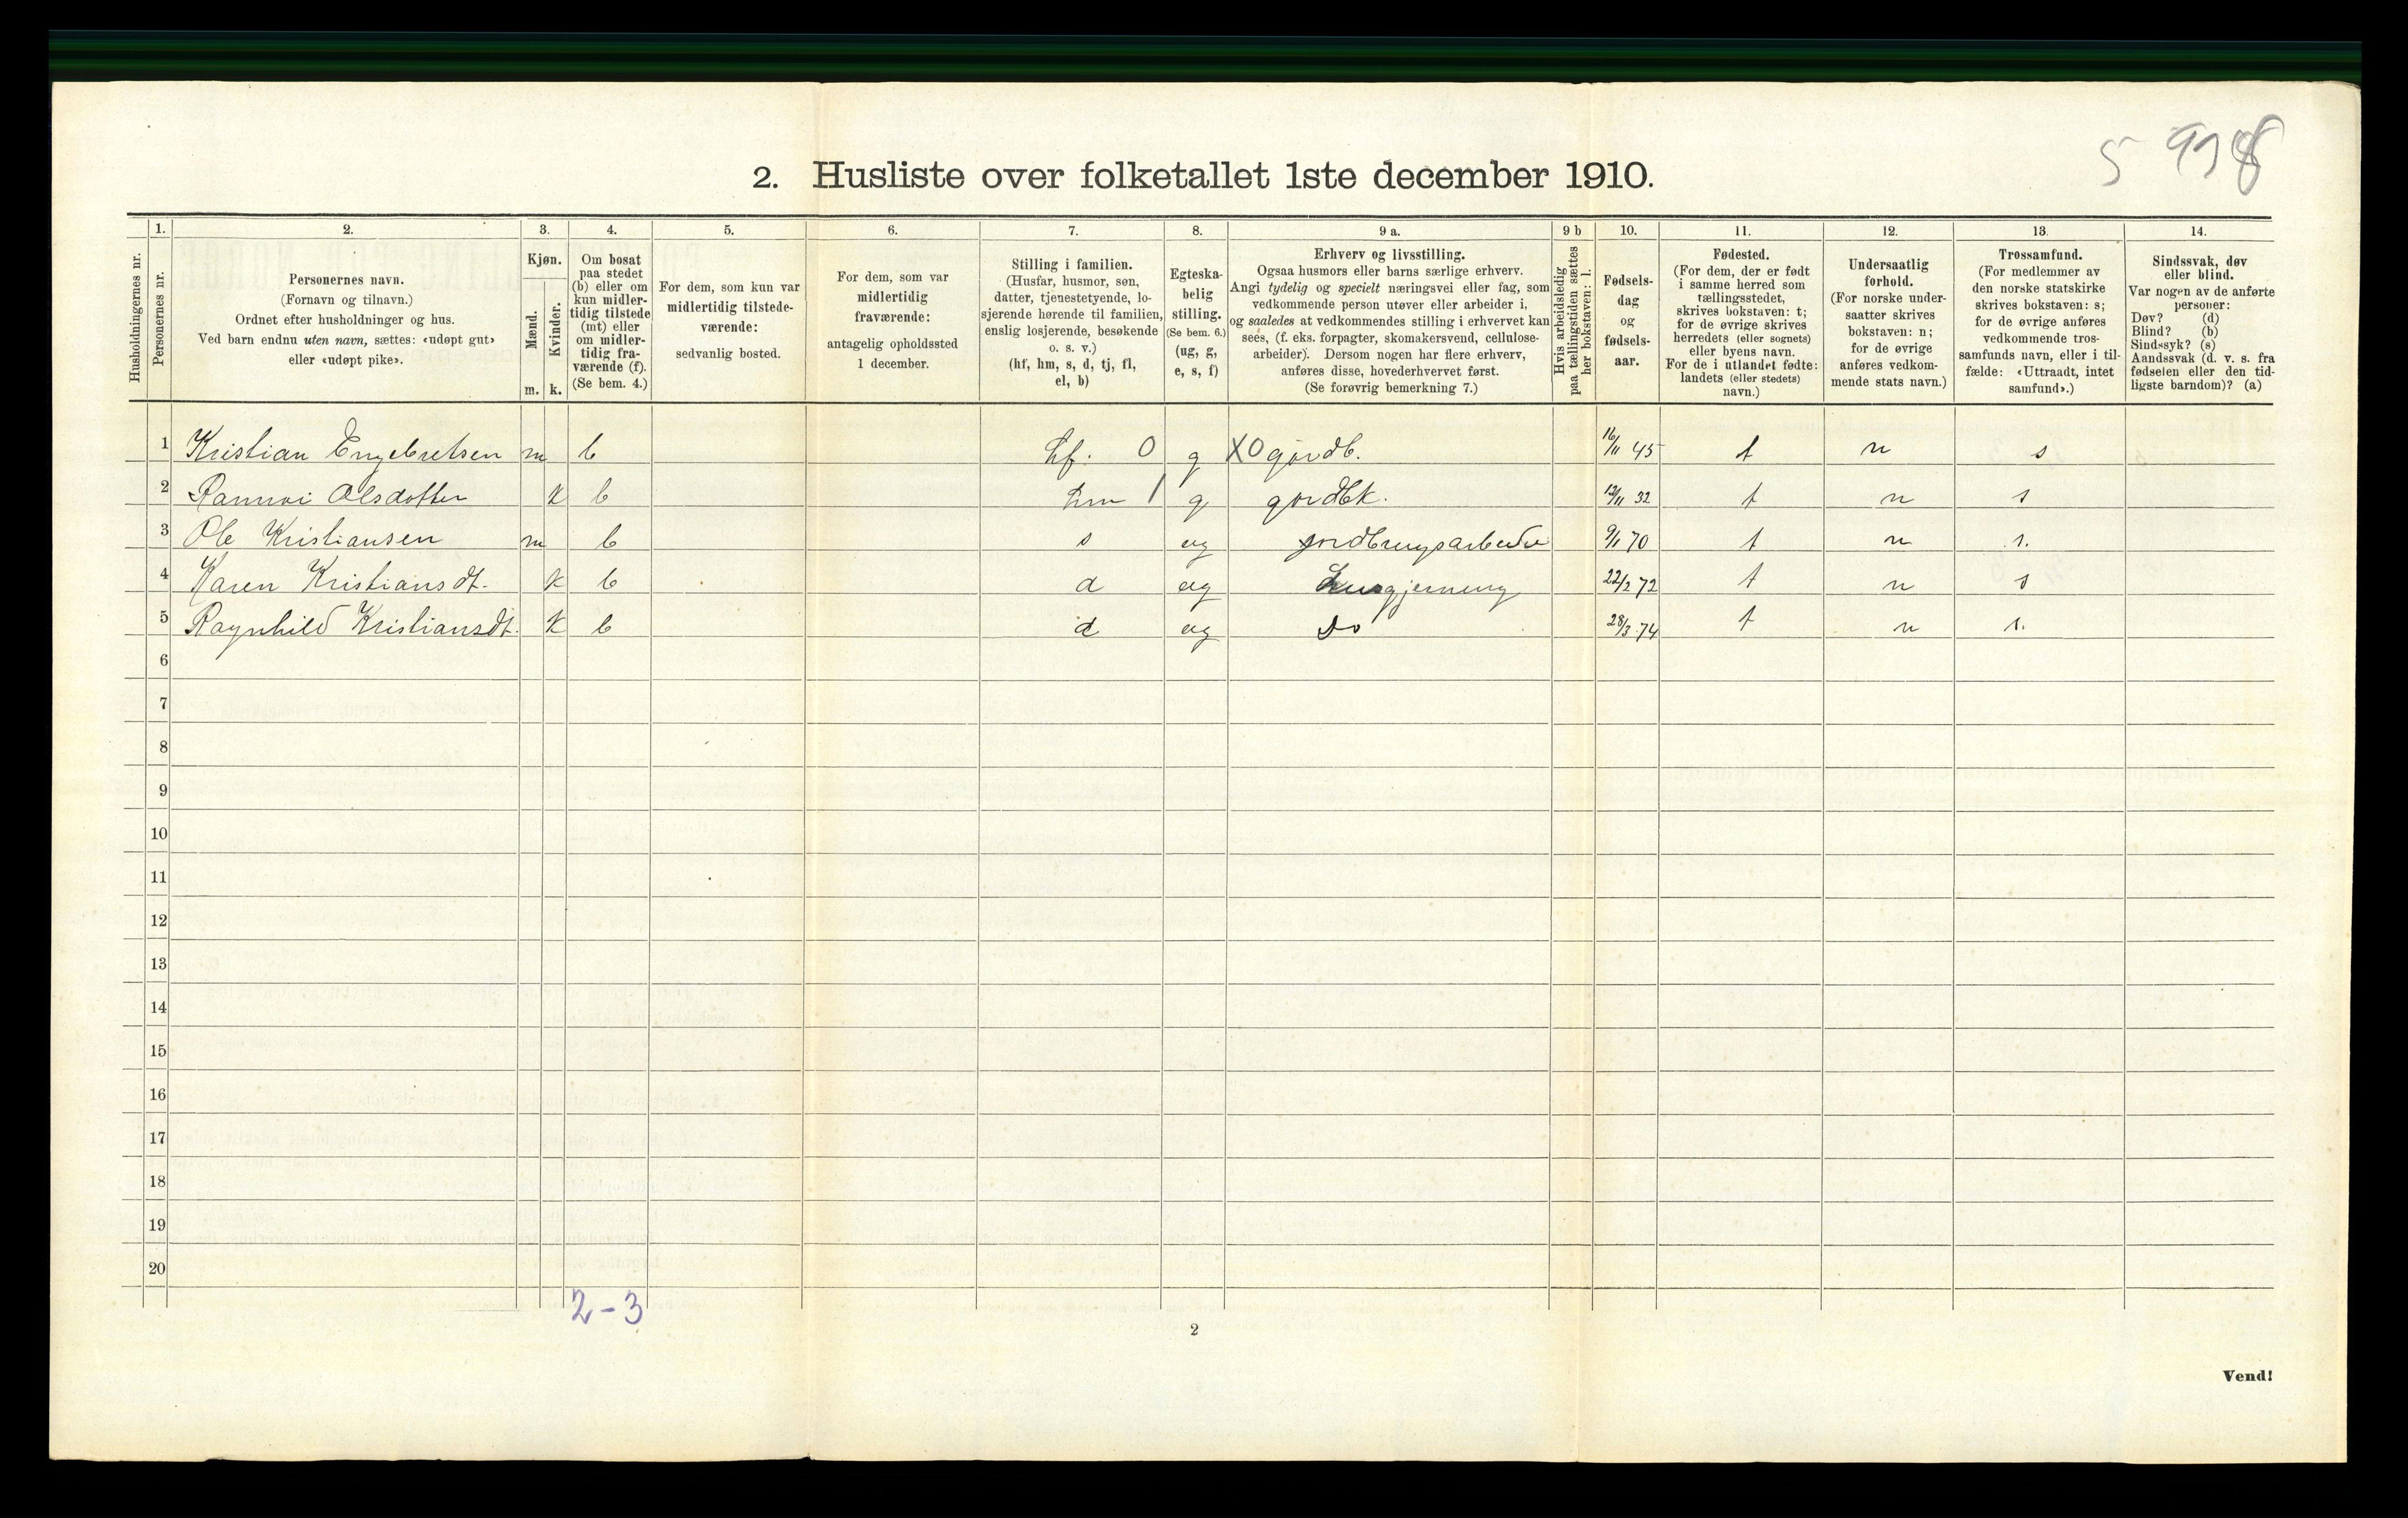 5 998
2. Husliste over folketallet 1ste december 1910.
Husholdningernes nr.
1. Personernes nr.
2. Personernes navn. (Fornavn og tilnavn.) Ordnet efter husholdninger og hus. Ved barn endnu uten navn, sættes: «udøpt gut» eller «udøpt pike».
3. Kjøn. Mænd. m. Kvinder. k.
4. Om bosat paa stedet (b) eller om kun midlertidig tilstede (mt) eller om midlertidig fraværende (f). (Se bem. 4.)
5. For dem, som kun var midlertidig tilstedeværende: sedvanlig bosted.
6. For dem, som var midlertidig fraværende: antagelig opholdssted 1 december.
7. Stilling i familien. (Husfar, husmor, søn, datter, tjenestetyende, losjerende hørende til familien, enslig losjerende, besøkende o. s. v.) (hf, hm, s, d, tj, fl, el, b)
8. Egteskabelig stilling. (Se bem. 6.) (ug, g, e, s, f)
9 a. Erhverv og livsstilling. Ogsaa husmors eller barns særlige erhverv. Angi tydelig og specielt næringsvei eller fag, som vedkommende person utøver eller arbeider i, og saaledes at vedkommendes stilling i erhvervet kan sees, (f. eks. forpagter, skomakersvend, cellulosearbeider). Dersom nogen har flere erhverv, anføres disse, hovederhvervet først. (Se forøvrig bemerkning 7.)
9 b Hvis arbeidsledig paa tællingstiden sættes her bokstaven: l.
10. Fødselsdag og fødselsaar.
11. Fødested. (For dem, der er født i samme herred som tællingsstedet, skrives bokstaven: t; for de øvrige skrives herredets (eller sognets) eller byens navn. For de i utlandet fødte: landets (eller stedets) navn.)
12. Undersaatlig forhold. (For norske undersaatter skrives bokstaven: n; for de øvrige anføres vedkommende stats navn.)
13. Trossamfund. (For medlemmer av den norske statskirke skrives bokstaven: s; for de øvrige anføres vedkommende trossamfunds navn, eller i tilfælde: «Uttraadt, intet samfund».)
14. Sindssvak, døv eller blind. Var nogen av de anførte personer: Døv? (d) Blind? (b) Sindssyk? (s) Aandssvak (d. v. s. fra fødselen eller den tidligste barndom)? (a)
1 Kristian Engebretsen m b hf. 0 g X0 gardb. 16/11 45 t n s
2 Rannvei Olsdotter k b hm 1 g gardbk. 12/11 32 t n s
3 Ole Kristiansen m b s ug jordbrugsarbeide 9/1 70 t n s.
4 Karen Kristiansdt. k b d ug Husgjerning 22/2 72 t n s
5 Ragnhild Kristiansdt. k b d ug Do 28/3 74 t n s.
6
7
8
9
10
11
12
13
14
15
16
17
18
19
20
2-3
2
Vend!